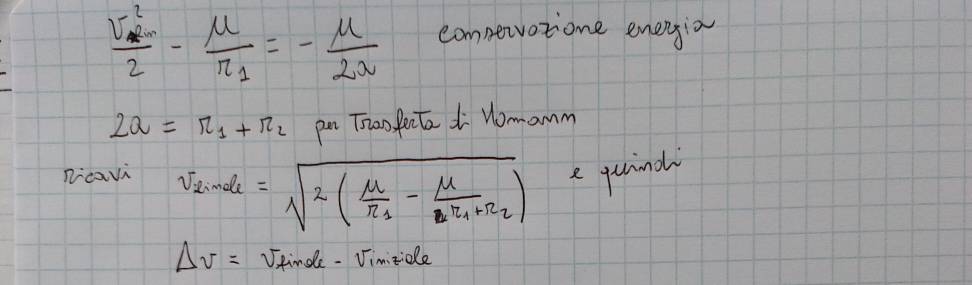 v_fin²/2 - μ/r₁ = - μ/2a conservazione energia
2a = r₁ + r₂ per Trasferta di Homann
Ricavi v_finale = √(2(μ/r₁ - μ/(r₁+r₂))) e quindi
Δv = v_finale - v_iniziale